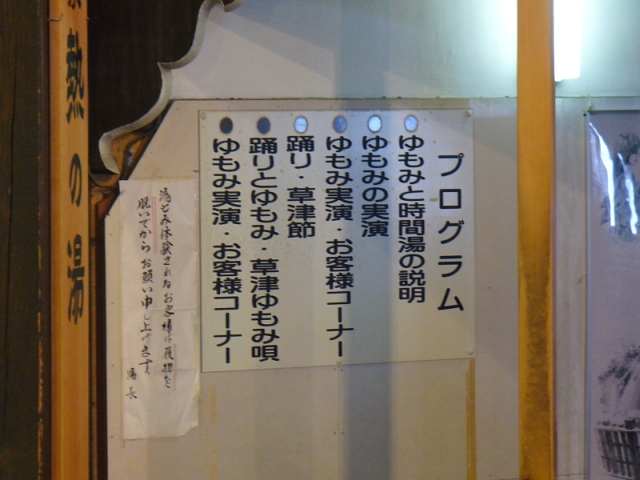 プログラム
ゆもみと時間湯の説明
ゆもみの実演
ゆもみ実演・お客様コーナー
踊り・草津節
踊りとゆもみ・草津ゆもみ唄
ゆもみ実演・お客様コーナー
湯もみ体験されるお客様は履物を
脱いでからお願い申し上げます。
湯長
熱の湯